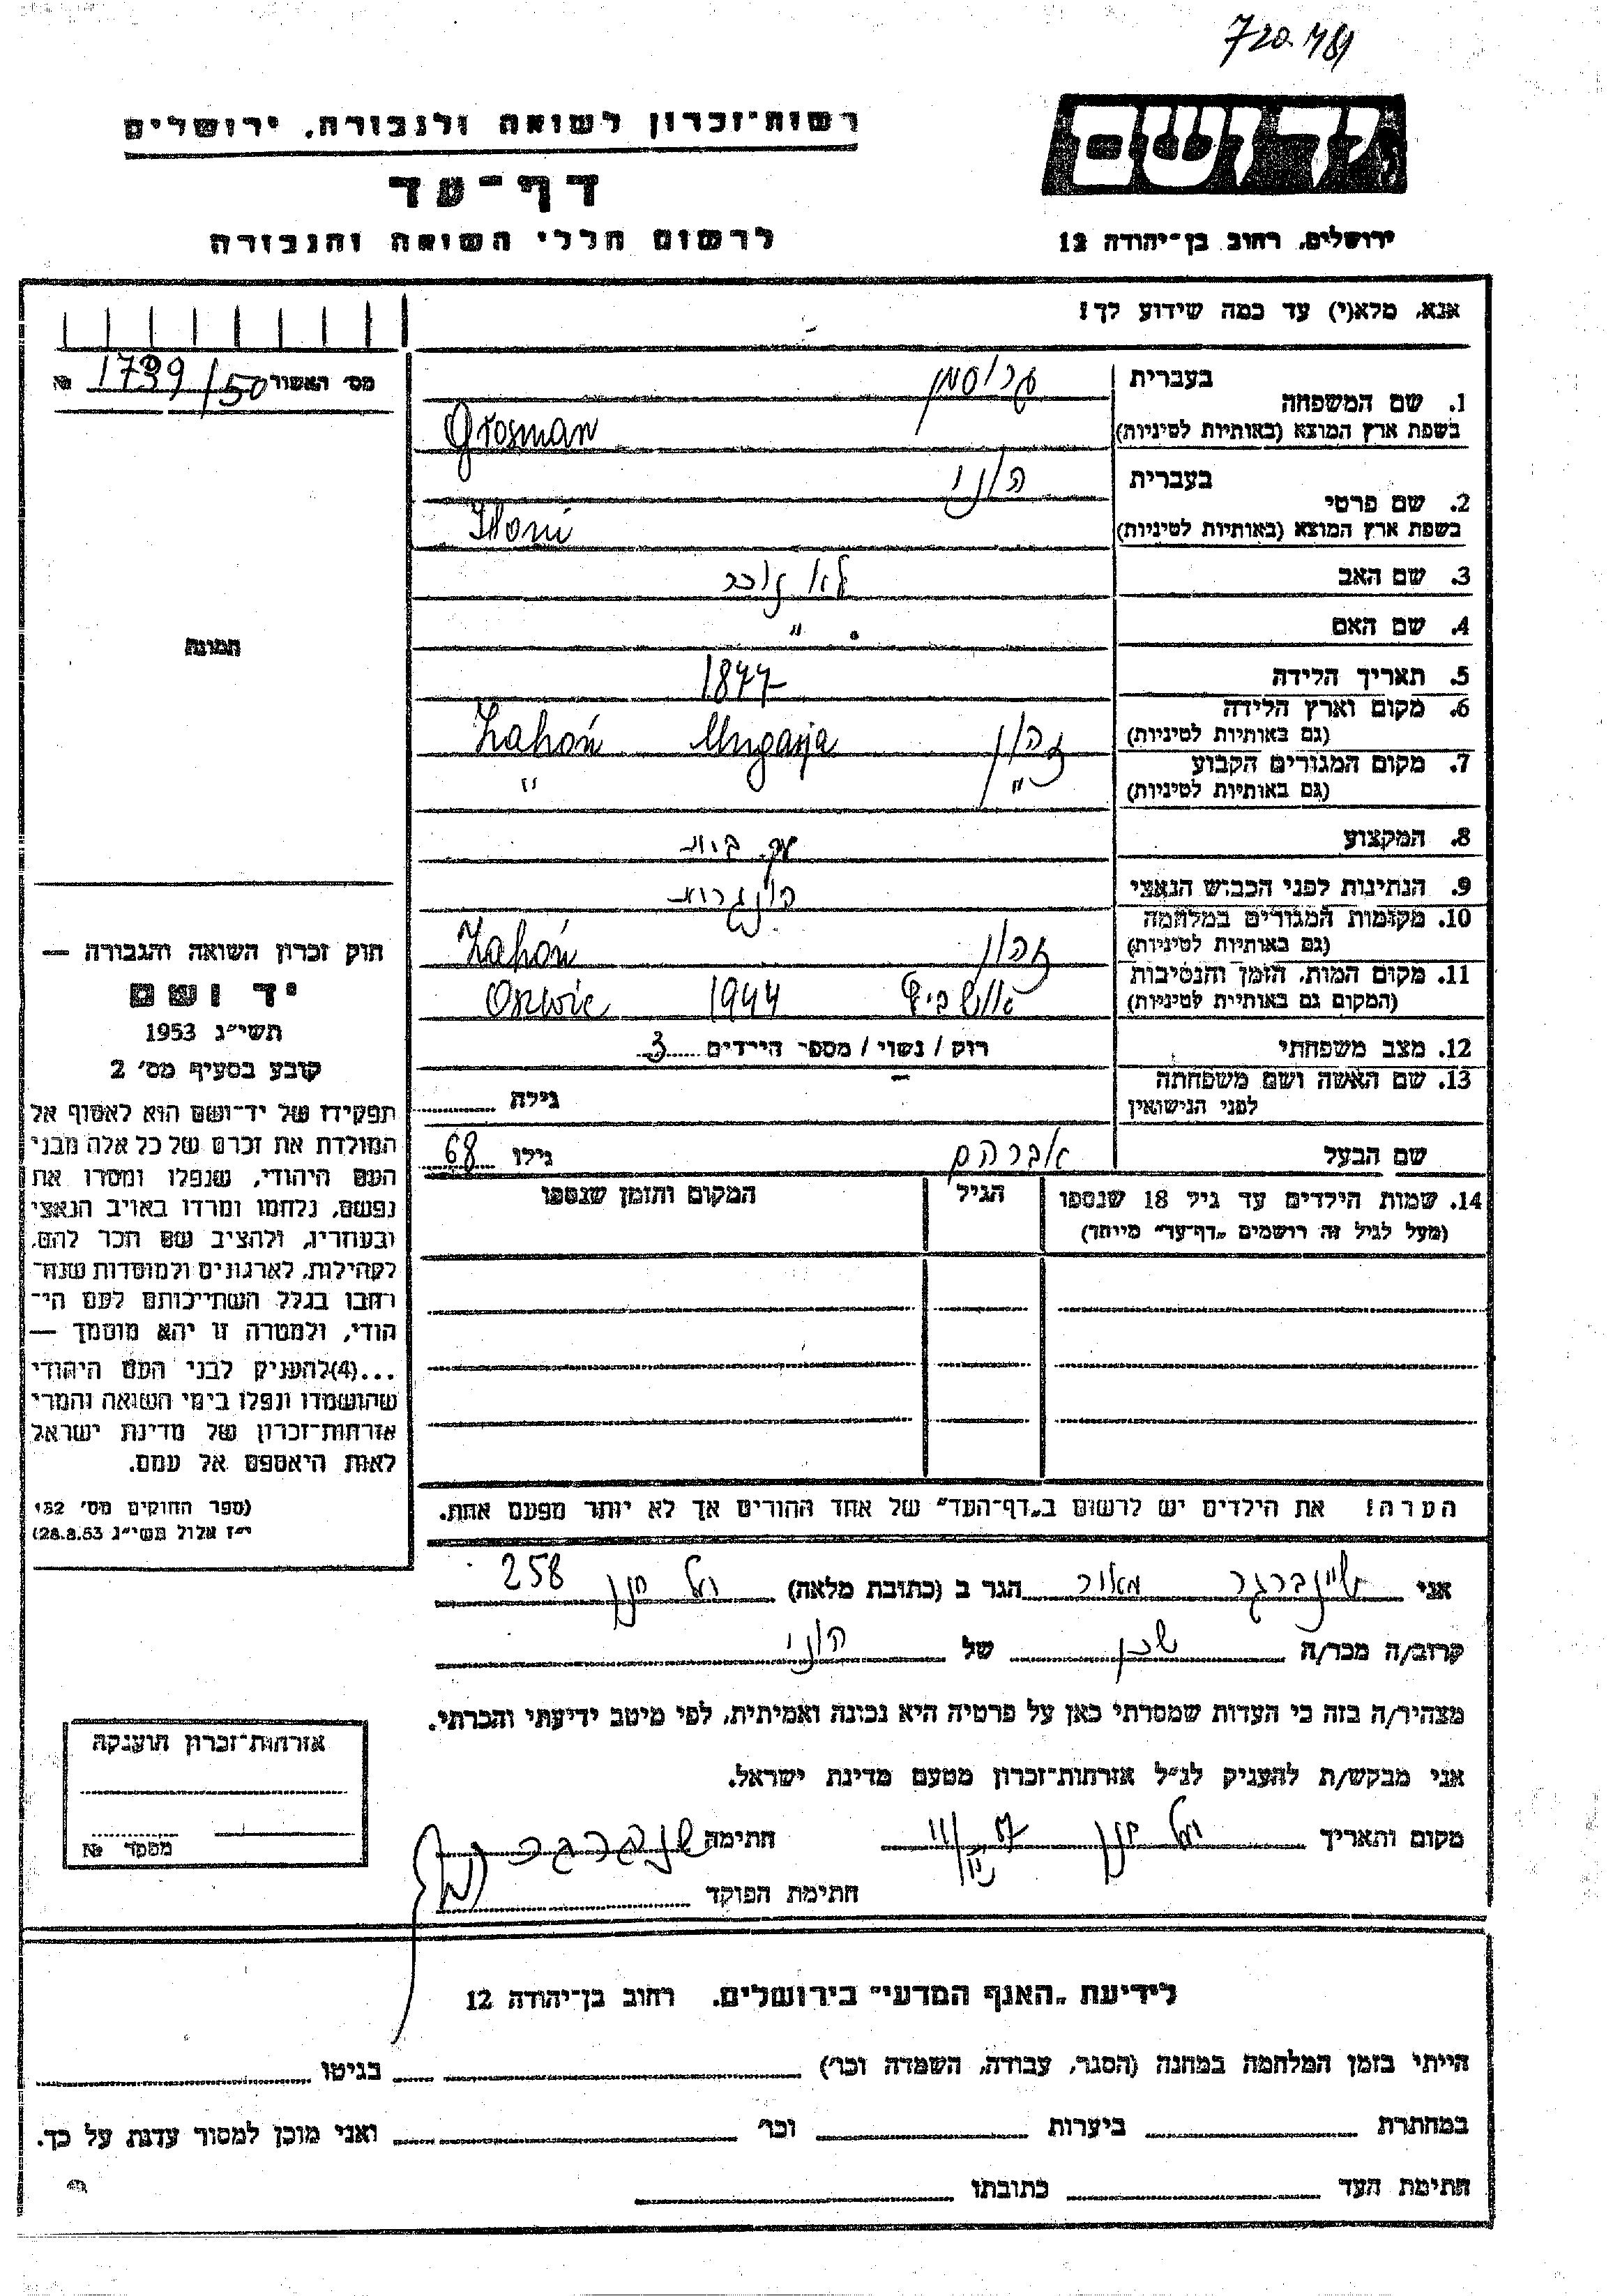 רשות־זכרון לשואה ולגבורה, ירושלים
דף־עד
לרשום חללי השואה והגבורה
יד ושם
ירושלים, רחוב בן־יהודה 12
אנא, מלא(י) עד כמה שידוע לך!
מס' האשור 1739/50 №
1. שם המשפחה
בעברית גרוסמן
בשפת ארץ המוצא (באותיות לטיניות) Grosman
2. שם פרטי
בעברית הוני
בשפת ארץ המוצא (באותיות לטיניות) Honi
3. שם האב לא זוכר
4. שם האם "
5. תאריך הלידה 1877
6. מקום וארץ הלידה
(גם באותיות לטיניות) זהון Ungarja Zahoń
7. מקום המגורים הקבוע
(גם באותיות לטיניות) " "
8. המקצוע עק. בית
9. הנתינות לפני הכבוש הנאצי הונגרית
10. מקומות המגורים במלחמה
(גם באותיות לטיניות) זהון Zahoń
11. מקום המות, הזמן והנסיבות
(המקום גם באותיות לטיניות) אושביץ 1944 Oswic
12. מצב משפחתי רוק / נשוי / מספר הילדים 3
13. שם האשה ושם משפחתה
לפני הנישואין – גילה
שם הבעל אברהם גילו 68
14. שמות הילדים עד גיל 18 שנספו
(מעל לגיל זה רושמים „דף־עד" מיוחד)
הגיל
המקום והזמן שנספו
הערה! את הילדים יש לרשום ב„דף־העד" של אחד ההורים אך לא יותר מפעם אחת.
תמונה
חוק זכרון השואה והגבורה —
יד ושם
תשי"ג 1953
קובע בסעיף מס' 2
תפקידו של יד־ושם הוא לאסוף אל
המולדת את זכרם של כל אלה מבני
העם היהודי, שנפלו ומסרו את
נפשם, נלחמו ומרדו באויב הנאצי
ובעוזריו, ולהציב שם וזכר להם,
לקהילות, לארגונים ולמוסדות שנח־
רבו בגלל השתייכותם לעם הי־
הודי, ולמטרה זו יהא מוסמך —
...(4)להעניק לבני העם היהודי
שהושמדו ונפלו בימי השואה והמרי
אזרחות־זכרון של מדינת ישראל
לאות היאספם אל עמם.
(ספר החוקים מס' 132
י"ז אלול תשי"ג 28.8.53)
אני שיינברגר מאור הגר ב (כתובת מלאה) 258
קרוב/ה מכר/ה שכן של הוני
מצהיר/ה בזה כי העדות שמסרתי כאן על פרטיה היא נכונה ואמיתית, לפי מיטב ידיעתי והכרתי.
אני מבקש/ת להעניק לנ"ל אזרחות־זכרון מטעם מדינת ישראל.
מקום ותאריך חתימה
חתימת הפוקד
אזרחות־זכרון הוענקה
מספר №
לידיעת „האגף המדעי" בירושלים. רחוב בן־יהודה 12
הייתי בזמן המלחמה במחנה (הסגר, עבודה, השמדה וכו') בגיטו
במחתרת ביערות וכו' ואני מוכן למסור עדות על כך.
חתימת העד כתובתו